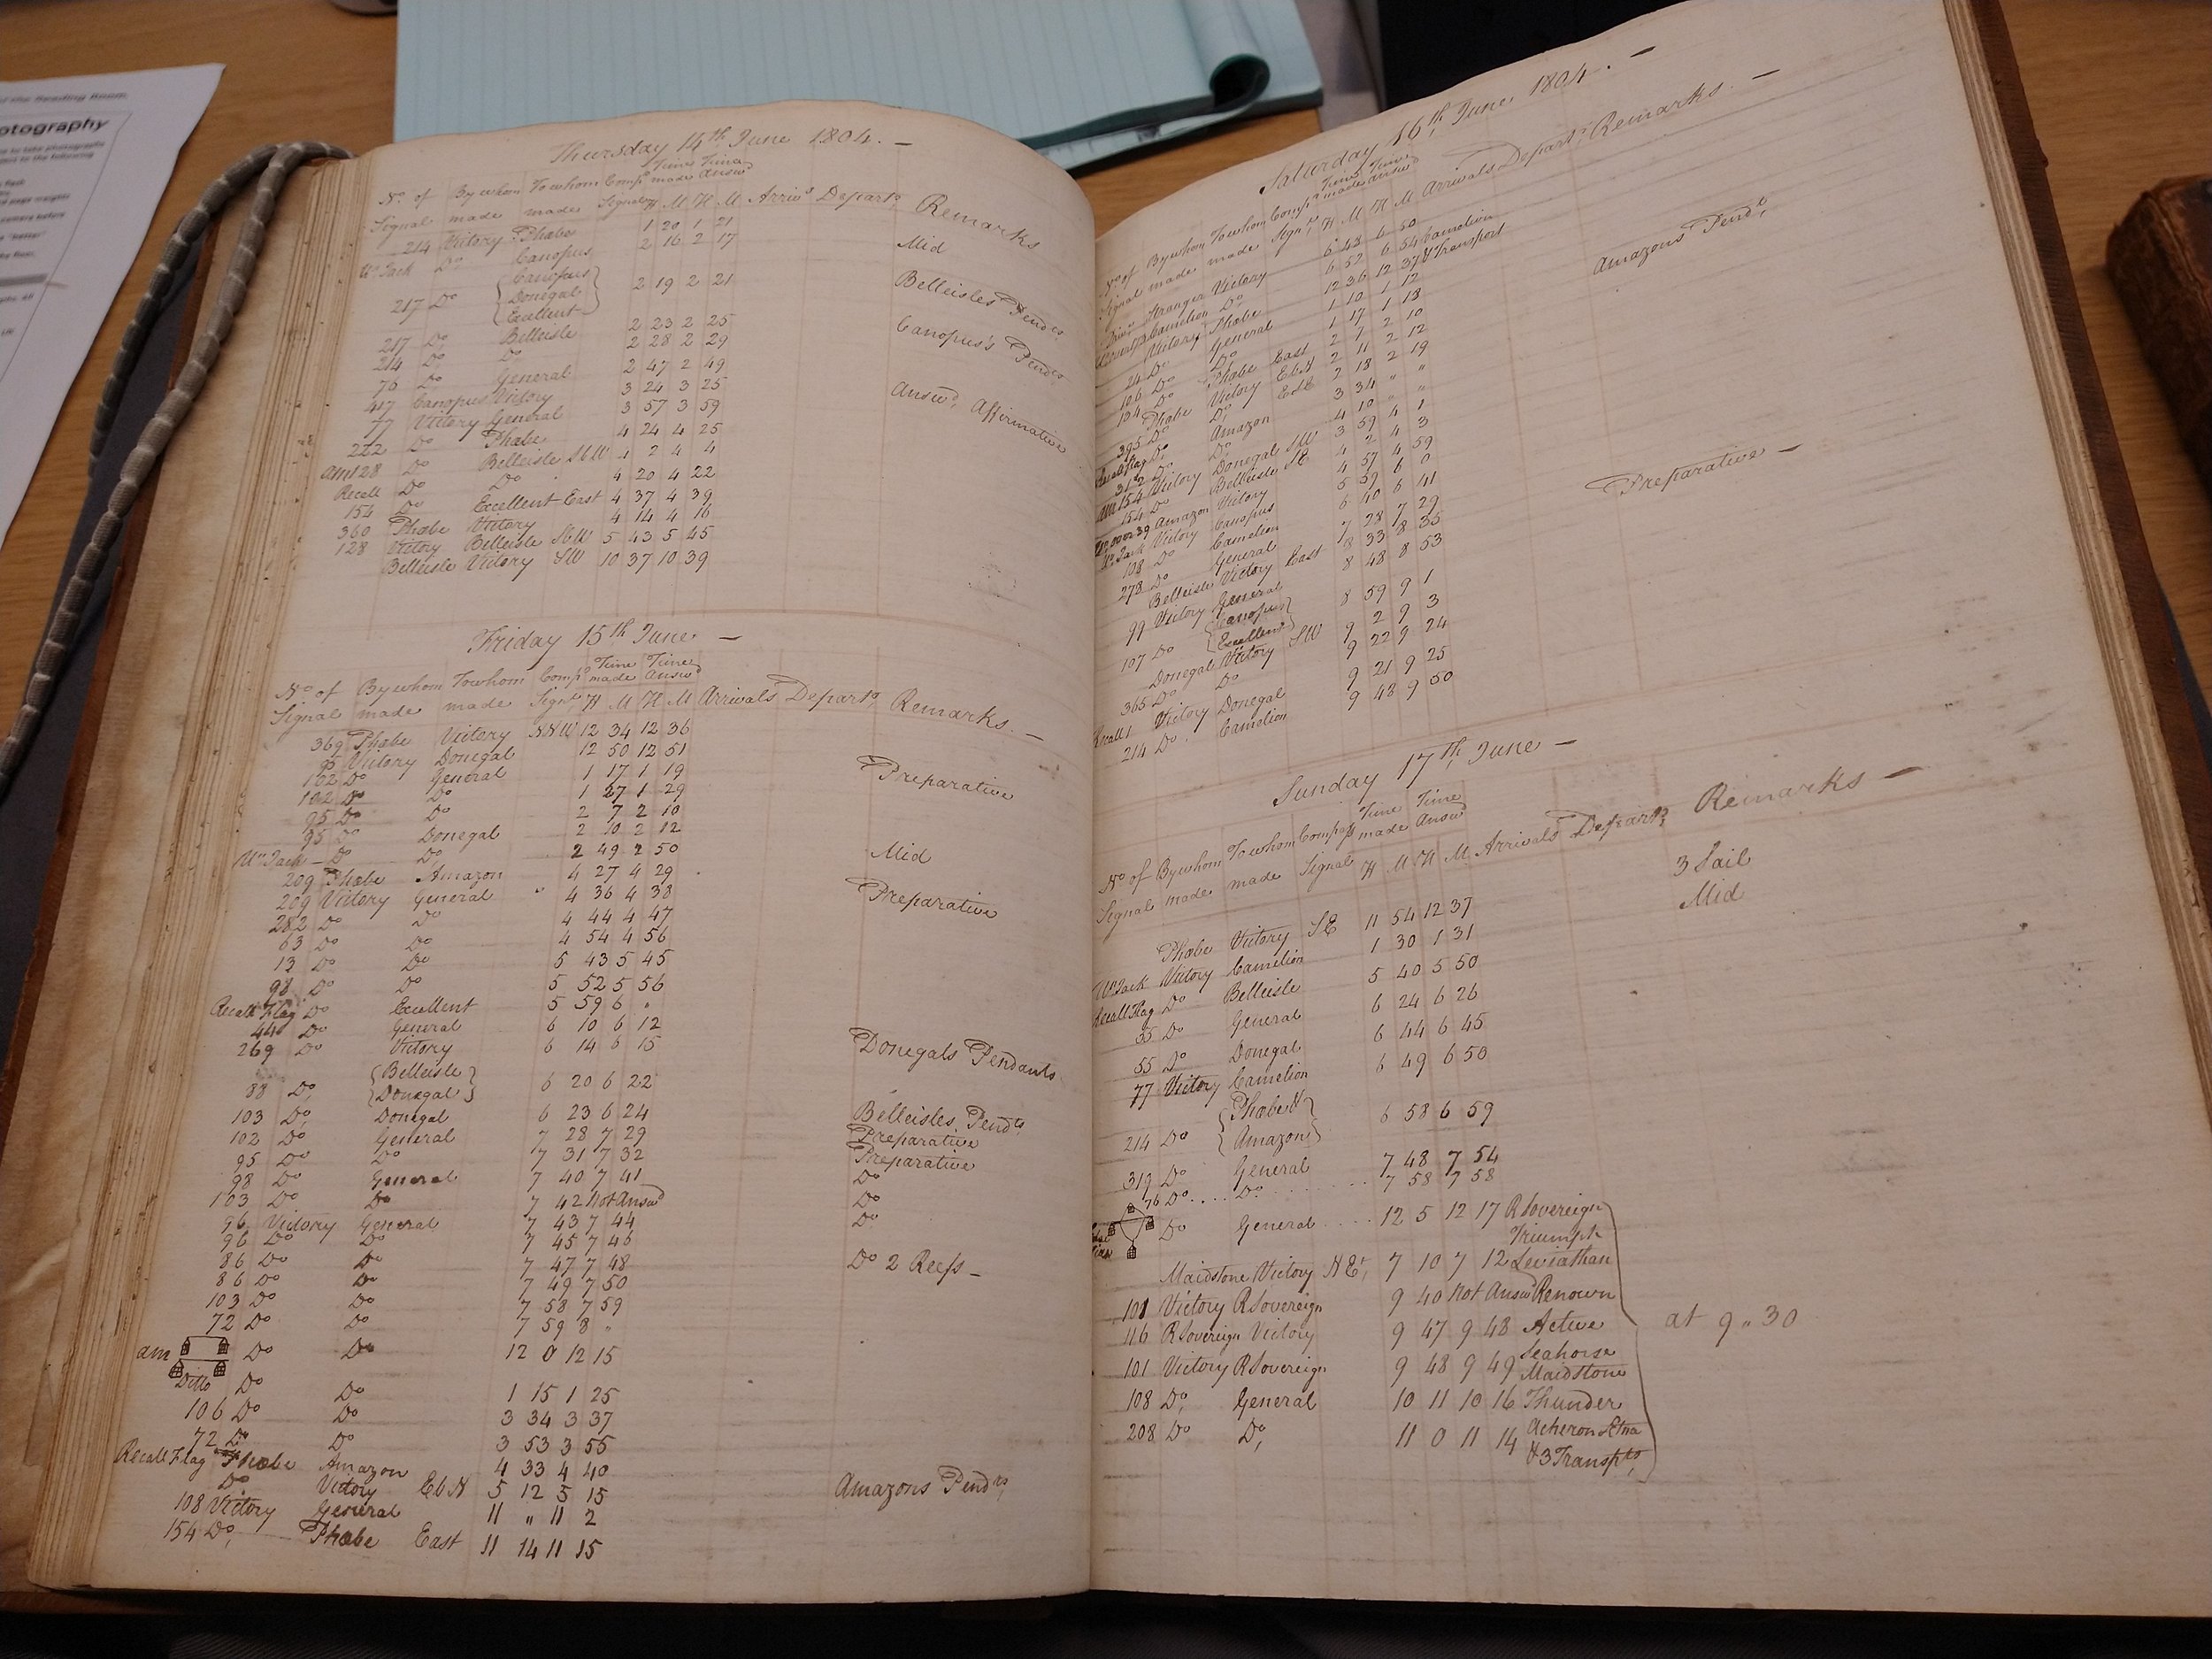 of the Reading Room
otography
Thursday 14th June 1804. —
Time Time
No. of By whom To whom Comps made Answd
Signal made made Signal H M H M Arrivs Departs Remarks
214 Victory Phœbe 1 20 1 21
Un Jack Do Canopus 2 16 2 17 Mid
Canopus
217 Do Donegal 2 19 2 21 Belleisles Pendts
Excellent
217 Do Belleisle 2 23 2 25 Canopus's Pendts
214 Do Do 2 28 2 29
76 Do General 2 47 2 49
417 Canopus Victory 3 24 3 25 Answd Affirmative
77 Victory General 3 57 3 59
222 Do Phœbe 4 24 4 25
am 128 Do Belleisle SbW 4 2 4 4
Recall Do Do 4 20 4 22
154 Do Excellent East 4 37 4 39
360 Phœbe Victory 4 14 4 16
128 Victory Belleisle SbW 5 43 5 45
Belleisle Victory SW 10 37 10 39
Friday 15th June. —
Time Time
No of By whom To whom Comps made Answd
Signal made made Signl H M H M Arrivals Departs Remarks. —
369 Phœbe Victory NNW 12 34 12 36
95 Victory Donegal 12 50 12 51
102 Do General 1 17 1 19 Preparative
102 Do Do 1 27 1 29
95 Do Do 2 7 2 10
95 Do Donegal 2 10 2 12
Un Jack — Do Do 2 49 2 50 Mid
209 Phœbe Amazon 4 27 4 29
209 Victory General 4 36 4 38 Preparative
282 Do Do 4 44 4 47
63 Do Do 4 54 4 56
13 Do Do 5 43 5 45
98 Do Do 5 52 5 56
Recall Flag Do Excellent 5 59 6 "
44 Do General 6 10 6 12
269 Do Victory 6 14 6 15 Donegals Pendants
Belleisle
88 Do Donegal 6 20 6 22
103 Do Donegal 6 23 6 24 Belleisles Pendts
102 Do General 7 28 7 29 Preparative
95 Do Do 7 31 7 32 Preparative
98 Do General 7 40 7 41 Do
103 Do Do 7 42 Not Answd Do
96 Victory General 7 43 7 44 Do
96 Do Do 7 45 7 46
86 Do Do 7 47 7 48 Do 2 Reefs —
86 Do Do 7 49 7 50
103 Do Do 7 58 7 59
72 Do Do 7 59 8 "
am Do Do 12 0 12 15
Ditto Do Do 1 15 1 25
106 Do Do 3 34 3 37
72 Do Do 3 53 3 55
Recall Flag Phœbe Amazon 4 33 4 40
Do Victory EbN 5 12 5 15 Amazons Pendts
108 Victory General 11 " 11 2
154 Do Phœbe East 11 14 11 15
Satturday 16th June. 1804. —
Time Time
No of By whom To whom Comps made answd
Signal made made Signl H M H M Arrivals Departs Remarks. —
Stranger Victory 6 48 6 50
Camelion Do 6 52 6 54 Camelion
Victory Phœbe 12 36 12 37 & Transport
24 Do General 1 10 1 12 Amazons Pendts
106 Do Do 1 17 1 18
134 Do Phœbe East 2 7 2 10
Phœbe Victory EbN 2 11 2 12
395 Do Do ESE 2 18 2 19
Recall Flag Do Amazon 3 34 " "
312 Do Do 4 10 " "
am 154 Victory Donegal SW 3 59 4 1
154 Do Belleisle SE 4 2 4 3
39 Amazon Victory 4 57 4 59
Un Jack Victory Canopus 5 59 6 0
108 Do Camelion 6 40 6 41 Preparative —
278 Do General 7 28 7 29
Belleisle Victory East 8 33 8 35
99 Victory General 8 48 8 53
Canopus
107 Do Excellent 8 59 9 1
Donegal Victory SW 9 2 9 3
365 Do Do 9 22 9 24
Recall Victory Donegal 9 21 9 25
214 Do Camelion 9 48 9 50
Sunday 17th June —
Time Time
No of By whom To whom Comps made Answd
Signal made made Signal H M H M Arrivals Departs Remarks —
Phœbe Victory SE 11 54 12 37 3 Sail
Un Jack Victory Camelion 1 30 1 31 Mid
Recall Flag Do Belleisle 5 40 5 50
35 Do General 6 24 6 26
55 Do Donegal 6 44 6 45
77 Victory Camelion 6 49 6 50
Phœbe &
214 Do Amazon 6 58 6 59
319 Do General 7 48 7 54
76 Do .... Do ........ 7 58 7 58
Do General .... 12 5 12 17 R Sovereign
Triumph
Maidstone Victory NE 7 10 7 12 Leviathan
101 Victory R Sovereign 9 40 Not Answd Renown
116 R Sovereign Victory 9 47 9 48 Active at 9 " 30
Seahorse
101 Victory R Sovereign 9 48 9 49 Maidstone
108 Do General 10 11 10 16 Thunder
208 Do Do 11 0 11 14 Acheron Etna
& 3 Transpts